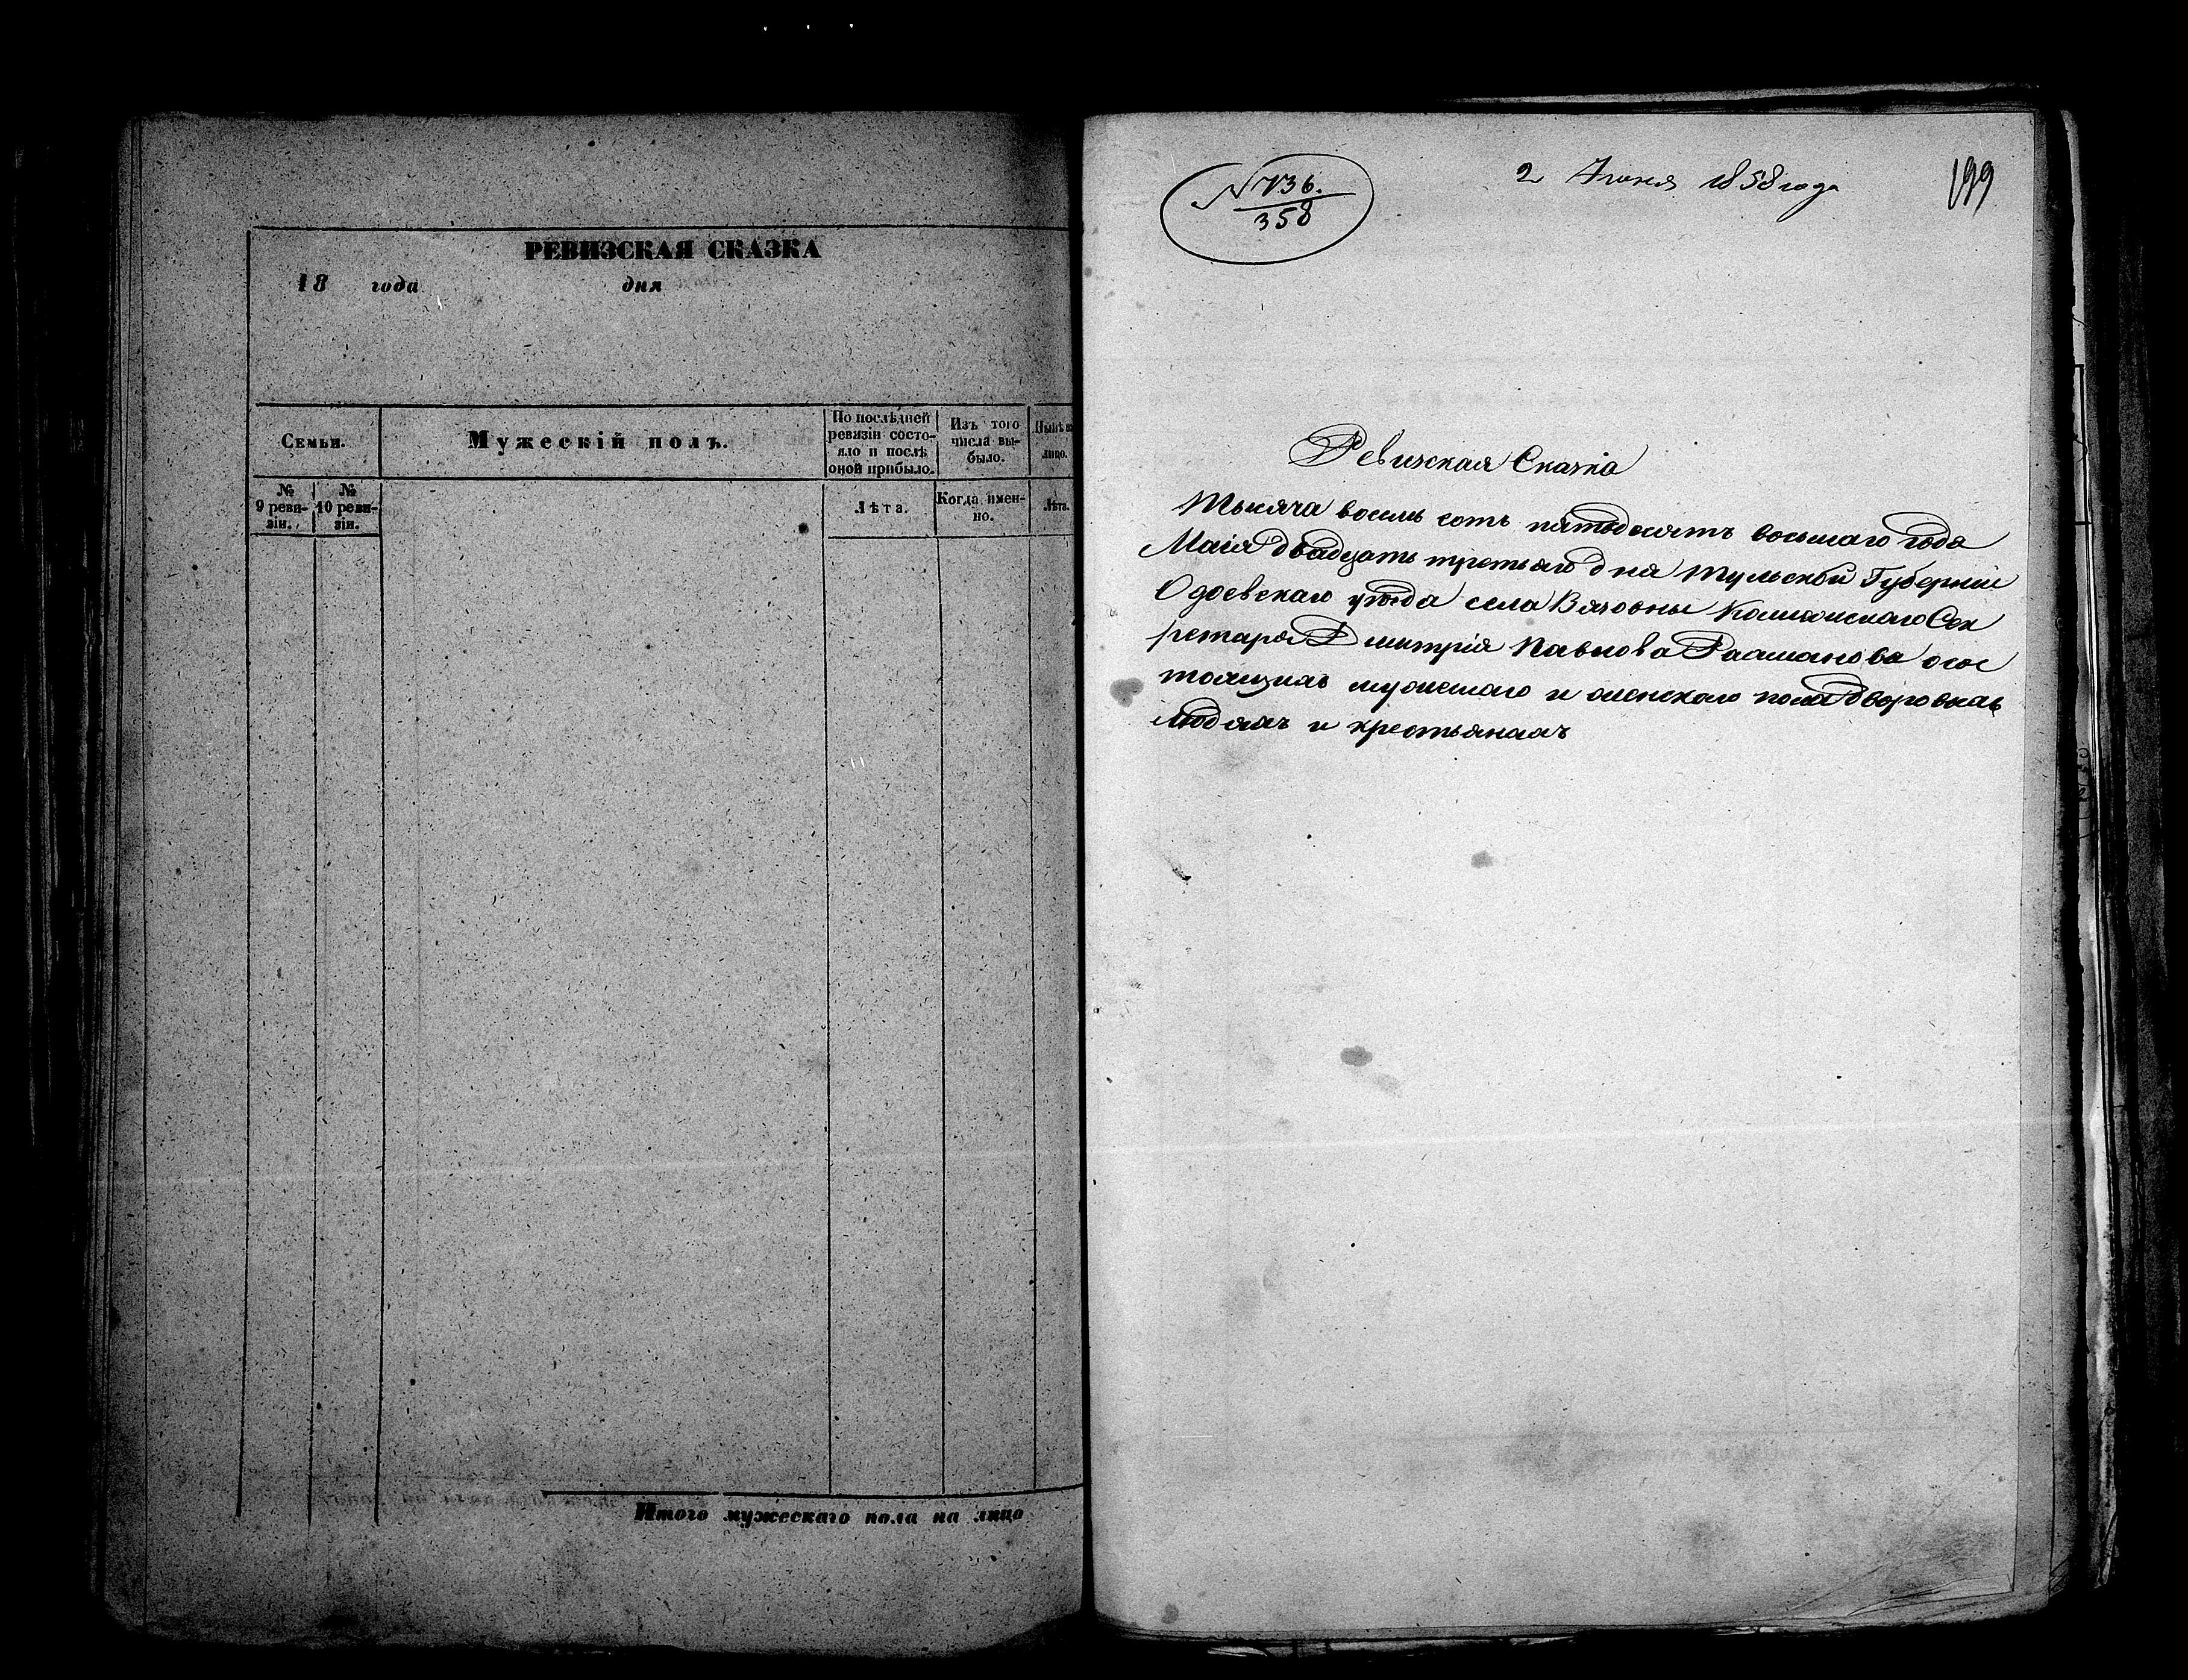 РЕВИЗСКАЯ СКАЗКА
18 года дня
Семьи.
Мужескій полъ.
По послѣдней
ревизіи состо-
яло и послѣ
оной прибыло.
Изъ того
числа вы-
было.
лицо.
№
9 реви-
зіи.
№
10 реви-
зіи.
Лѣта.
Когда имен-
но.
Лѣта.
Итого мужескаго пола на лицо
№ 736.
358
2 Іюня 1858 года
199
Ревизская Сказка
Тысяча восемь сотъ пятьдесятъ восьмаго года
Маія двадцать третьяго дня Тульской Губерніи
Одоевскаго уѣзда села Вязовны Сек
ретаря Дмитрія Павлова о сос
тоящихъ мужескаго и женскаго пола дворовыхъ
людяхъ и крестьянахъ